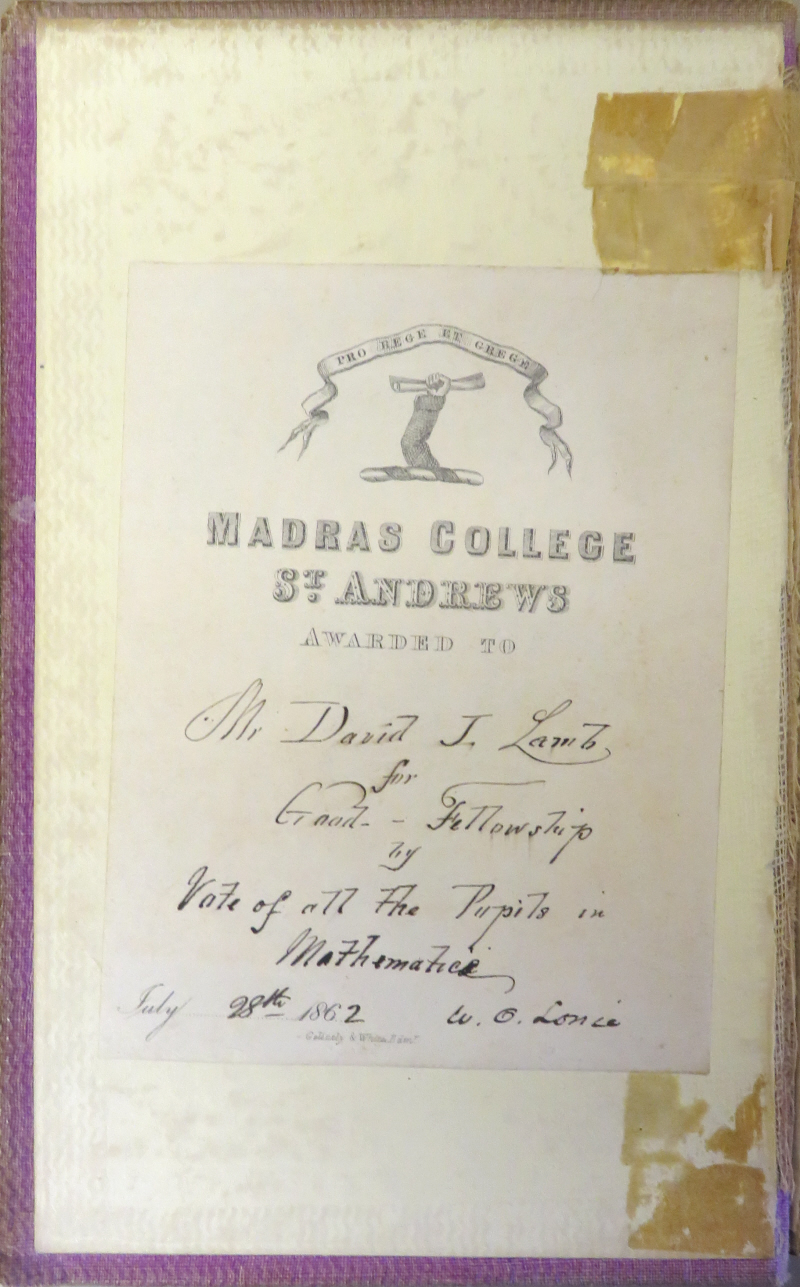 PRO REGE ET GREGE
MADRAS COLLEGE
ST. ANDREWS
AWARDED TO
Mr David J. Lamb
for
Good - Fellowship
by
Vote of all the Pupils in
Mathematics
July 28th 1862 W. O. Lonie
& Edinr